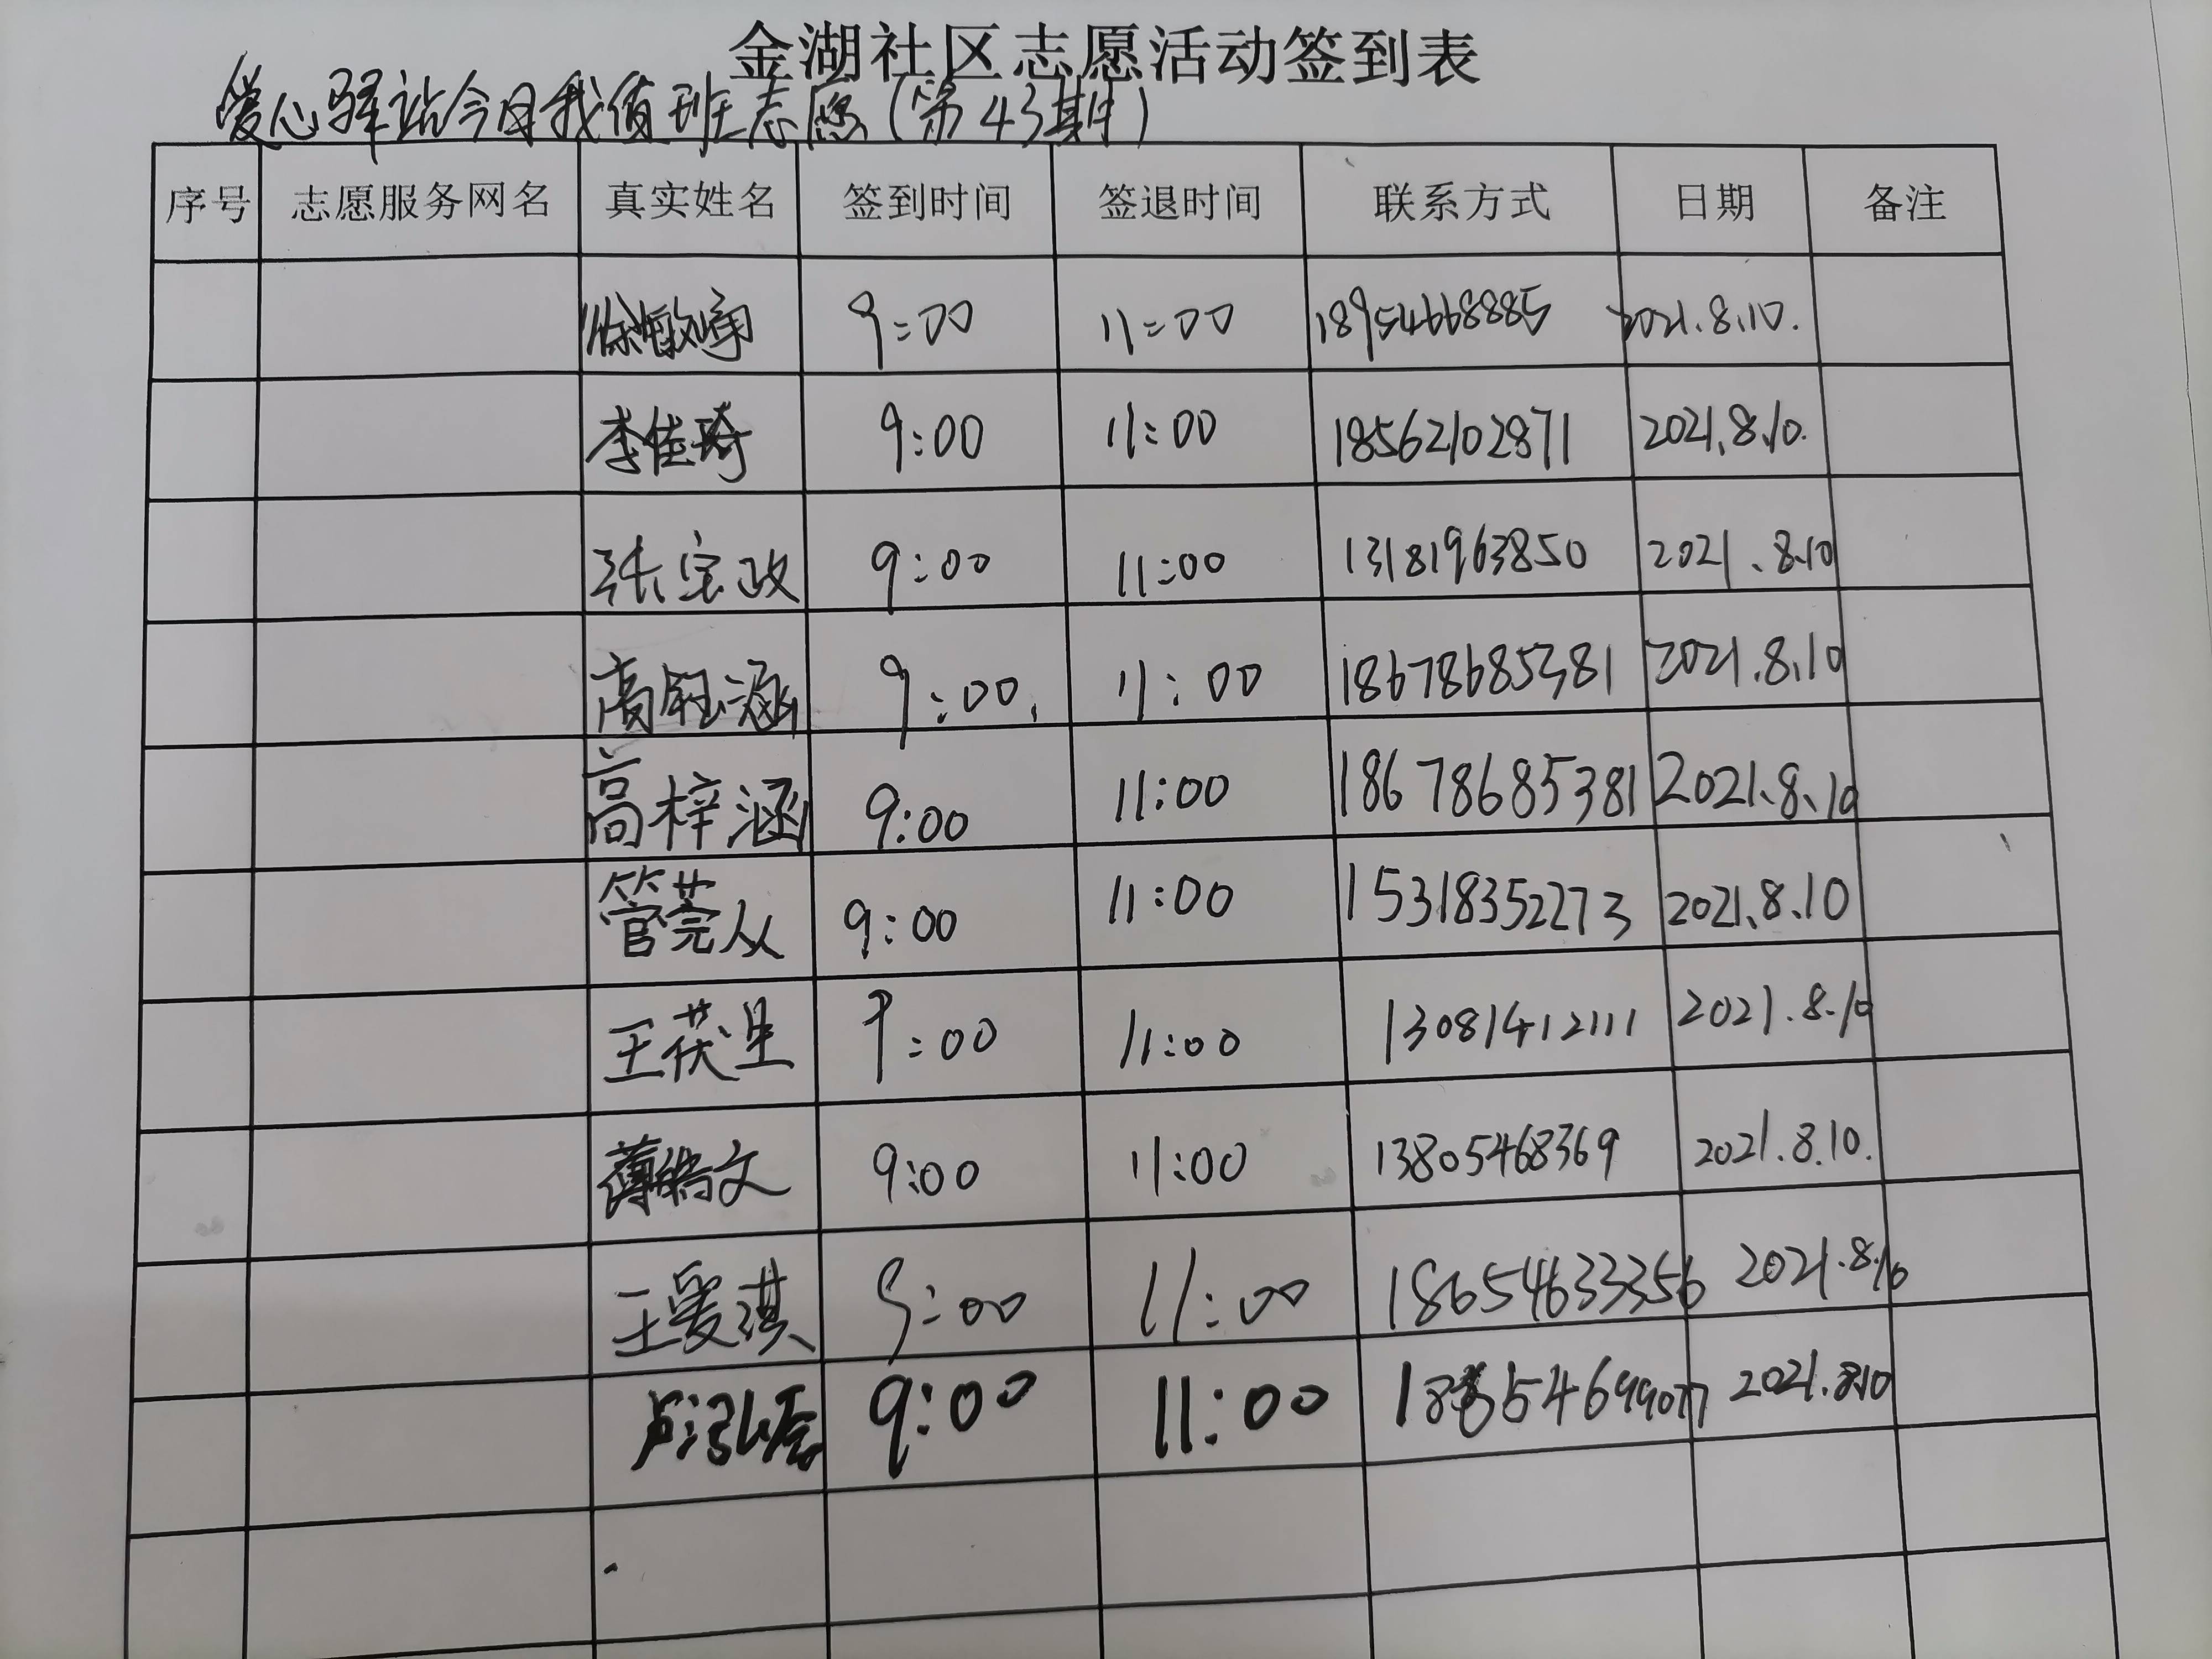 金湖社区志愿活动签到表
爱心驿站今日我值班志愿(第43期)
序号 志愿服务网名 真实姓名 签到时间 签退时间 联系方式 日期 备注
徐敏 9:00 11:00 18954668885 2021.8.10.
李佳琦 9:00 11:00 18562102871 2021.8.10.
张宝政 9:00 11:00 13181963850 2021.8.10
高钰涵 9:00. 11:00 18678685381 2021.8.10
高梓涵 9:00 11:00 18678685381 2021.8.10
管莞从 9:00 11:00 15318352273 2021.8.10
王茯星 9:00 11:00 13081412111 2021.8.10
薄 文 9:00 11:00 13805468369 2021.8.10.
王爱淇 9:00 11:00 18654633356 2021.8.10
卢泓 9:00 11:00 2021.8.10